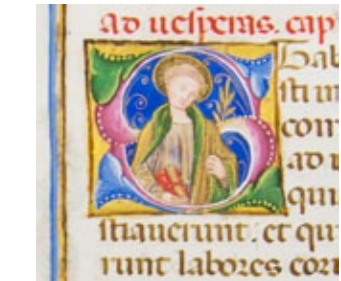 ad uesperas. cap
Stab
sti in
con
ad u
qui
stiauerunt. et qu
runt labores eor